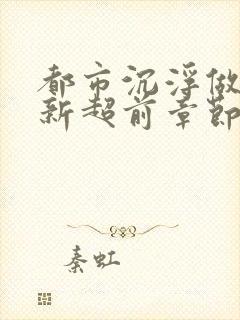 都市沉浮做
新超前章節
秦虹